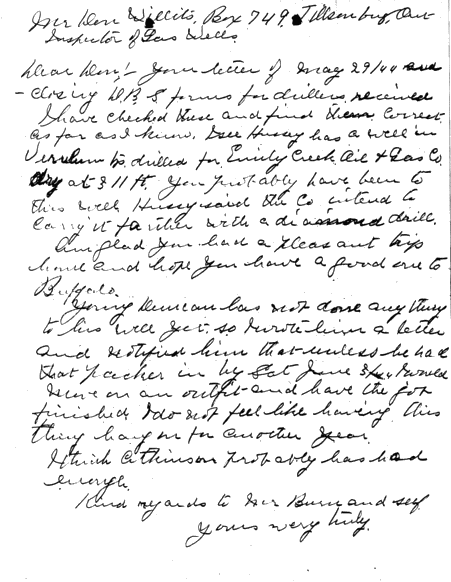 Mr Don Willits, Box 749, Tillsonburg, Ont
Inspector of Gas Wells.
Dear Don:- Your letter of May 29/44 and
closing D.B.S forms for drillers received
I have checked these and find them correct
as far as I know. Lee Hussy has a well in
drilled for Emily Creek Oil & Gas Co.
dry at 811 ft. You probably have been to
this well Hussy said the Co intend to
carry it farther with a diamond drill.
Am glad you had a pleasant trip
home and hope you have a good one to
Buffalo.
Young Duncan has not done any thing
to his well yet. so I wrote him a letter
and notified him that unless he had
that packer in by Sat June 3/44 I would
move on an outfit and have the job
finished I do not feel like having this
thing hang on for another year.
I think Atkinson probably has had
enough.
Kind regards to Mr Burn and self
Yours very truly.